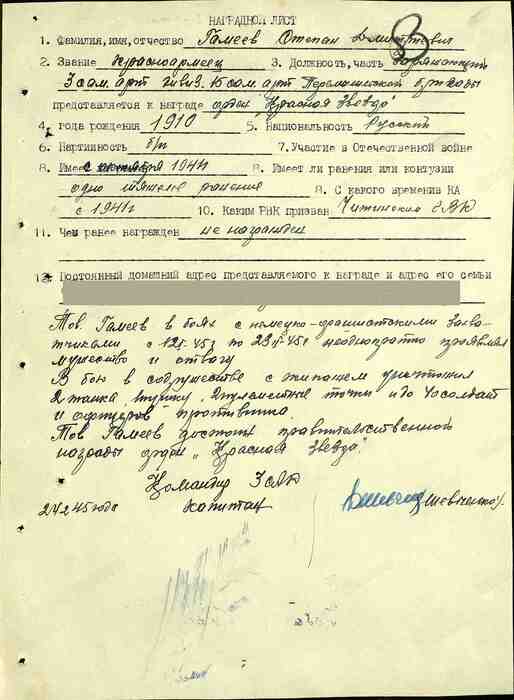 НАГРАДНОЙ ЛИСТ
1. Фамилия, имя, отчество Гамеев Степан Дмитриевич
2. Звание красноармеец 3. Должность, часть заряжающий
3 сам. арт. дивиз. 15 сам. арт. Перемышльской бригады
представляется к награде орден "Красная Звезда"
4. года рождения 1910 5. Национальность Русский
6. Партийность б/п 7. Участие в Отечественной войне
с октября 1941г 8. Имеет ли ранения или контузии
одно тяжелое ранение 9. С какого времени в КА
с 1941г 10. Каким РВК призван Читинским
11. Чем ранее награжден не награжден
12. Постоянный домашний адрес представляемого к награде и адрес его семьи
Тов. Гамеев в боях с немецко-фашистскими захва-
тчиками с по неоднократно проявлял
мужество и отвагу
В бою в содружестве с экипажем уничтожил
2 танка, пушку, 2 пулеметные точки и до 40 солдат
и офицеров противника.
Тов. Гамеев достоин правительственной
награды орден "Красная Звезда".
Командир
24.2.45 года капитан /Шевченко/